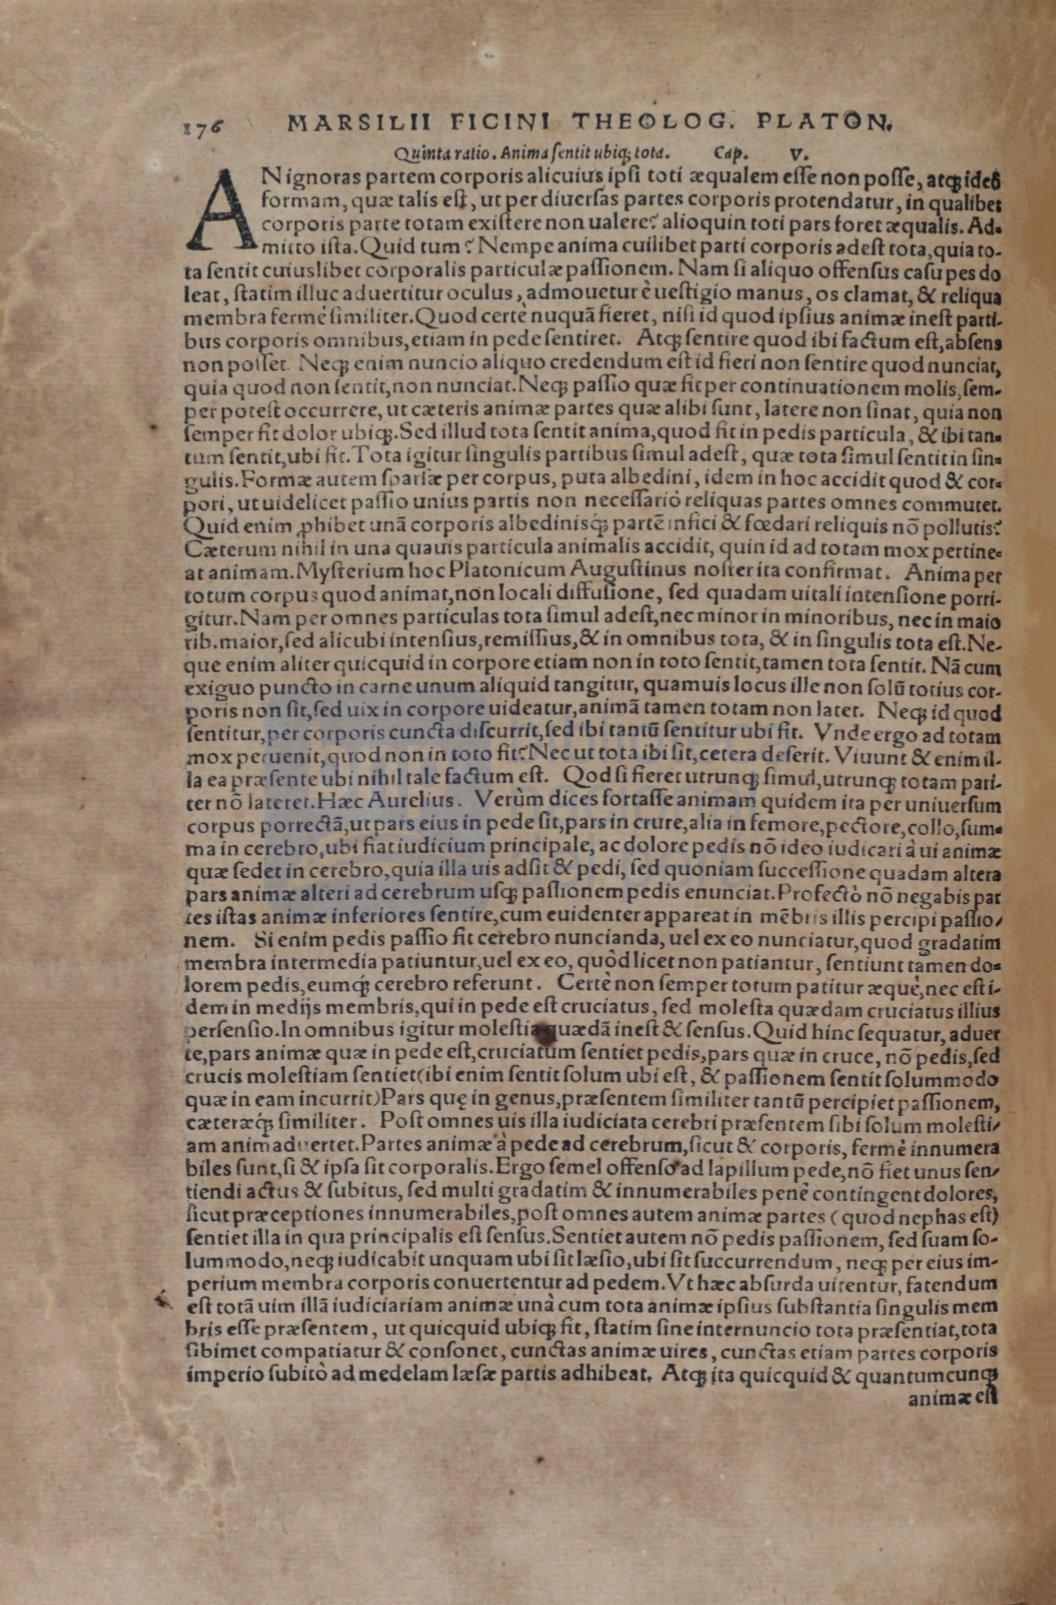 176 MARSILII FICINI THEOLOG. PLATON.
Quinta ratio. Anima sentit ubiq; tota. Cap. V.
AN ignoras partem corporis alicuius ipsi toti æqualem esse non posse, atq; ideo
formam, quæ talis est, ut per diuersas partes corporis protendatur, in qualibet
corporis parte totam existere non ualere? alioquin toti pars foret æqualis. Ad-
mitto ista. Quid tum? Nempe anima cuilibet parti corporis adest tota, quia to-
ta sentit cuiuslibet corporalis particulæ passionem. Nam si aliquo offensus casu pes do
leat, statim illuc aduertitur oculus, admouetur è uestigio manus, os clamat, & reliqua
membra fermè similiter. Quod certè nuquã fieret, nisi id quod ipsius animæ inest parti-
bus corporis omnibus, etiam in pede sentiret. Atq; sentire quod ibi factum est, absens
non posset. Neq; enim nuncio aliquo credendum est id fieri non sentire quod nunciat,
quia quod non sentit, non nunciat. Neq; passio quæ fit per continuationem molis, sem-
per potest occurrere, ut cæteris animæ partes quæ alibi sunt, latere non sinat, quia non
semper fit dolor ubiq;. Sed illud tota sentit anima, quod fit in pedis particula, & ibi tan-
tum sentit, ubi fit. Tota igitur singulis partibus simul adest, quæ tota simul sentit in sin-
gulis. Formæ autem sparsæ per corpus, puta albedini, idem in hoc accidit quod & cor-
pori, ut uidelicet passio unius partis non necessariò reliquas partes omnes commutet.
Quid enim ꝓhibet unã corporis albedinisq́; partẽ infici & fœdari reliquis nõ pollutis?
Cæterum nihil in una quauis particula animalis accidit, quin id ad totam mox pertine-
at animam. Mysterium hoc Platonicum Augustinus noster ita confirmat. Anima per
totum corpus quod animat, non locali diffusione, sed quadam uitali intensione porri-
gitur. Nam per omnes particulas tota simul adest, nec minor in minoribus, nec in maio
rib. maior, sed alicubi intensius, remissius, & in omnibus tota, & in singulis tota est. Ne-
que enim aliter quicquid in corpore etiam non in toto sentit, tamen tota sentit. Nã cum
exiguo puncto in carne unum aliquid tangitur, quamuis locus ille non solũ totius cor-
poris non sit, sed uix in corpore uideatur, animã tamen totam non latet. Neq; id quod
sentitur, per corporis cuncta discurrit, sed ibi tantũ sentitur ubi fit. Vnde ergo ad totam
mox peruenit, quod non in toto fit? Nec ut tota ibi sit, cetera deserit. Viuunt & enim il-
la ea præsente ubi nihil tale factum est. Qod si fieret utrunq; simul, utrunq; totam pari-
ter nõ lateret. Hæc Aurelius. Verùm dices fortasse animam quidem ita per uniuersum
corpus porrectã, ut pars eius in pede sit, pars in crure, alia in femore, pectore, collo, sum-
ma in cerebro, ubi fiat iudicium principale, ac dolore pedis nõ ideo iudicari à ui animæ
quæ sedet in cerebro, quia illa uis adsit & pedi, sed quoniam successione quadam altera
pars animæ alteri ad cerebrum usq; passionem pedis enunciat. Profectò nõ negabis par
tes istas animæ inferiores sentire, cum euidenter appareat in mẽbris illis percipi passio/
nem. Si enim pedis passio fit cerebro nuncianda, uel ex eo nunciatur, quod gradatim
membra intermedia patiuntur, uel ex eo, quòd licet non patiantur, sentiunt tamen do-
lorem pedis, eumq́; cerebro referunt. Certè non semper totum patitur æquè, nec est i-
dem in medijs membris, qui in pede est cruciatus, sed molesta quædam cruciatus illius
persensio. In omnibus igitur molestia quædã inest & sensus. Quid hinc sequatur, aduer
te, pars animæ quæ in pede est, cruciatum sentiet pedis, pars quæ in cruce, nõ pedis, sed
crucis molestiam sentiet (ibi enim sentit solum ubi est, & passionem sentit solummodo
quæ in eam incurrit) Pars quę in genus, præsentem similiter tantũ percipiet passionem,
cæteræq́; similiter. Post omnes uis illa iudiciata cerebri præsentem sibi solum molesti/
am animaduertet. Partes animæ à pede ad cerebrum, sicut & corporis, fermè innumera
biles sunt, si & ipsa sit corporalis. Ergo semel offenso ad lapillum pede, nõ fiet unus sen/
tiendi actus & subitus, sed multi gradatim & innumerabiles penè contingent dolores,
sicut præceptiones innumerabiles, post omnes autem animæ partes (quod nephas est)
sentiet illa in qua principalis est sensus. Sentiet autem nõ pedis passionem, sed suam so-
lummodo, neq; iudicabit unquam ubi sit læsio, ubi sit succurrendum, neq; per eius im-
perium membra corporis conuertentur ad pedem. Vt hæc absurda uitentur, fatendum
est totã uim illã iudiciariam animæ unà cum tota animæ ipsius substantia singulis mem
bris esse præsentem, ut quicquid ubiq; fit, statim sine internuncio tota præsentiat, tota
sibimet compatiatur & consonet, cunctas animæ uires, cunctas etiam partes corporis
imperio subitò ad medelam læsæ partis adhibeat. Atq; ita quicquid & quantumcunq;
animæ est